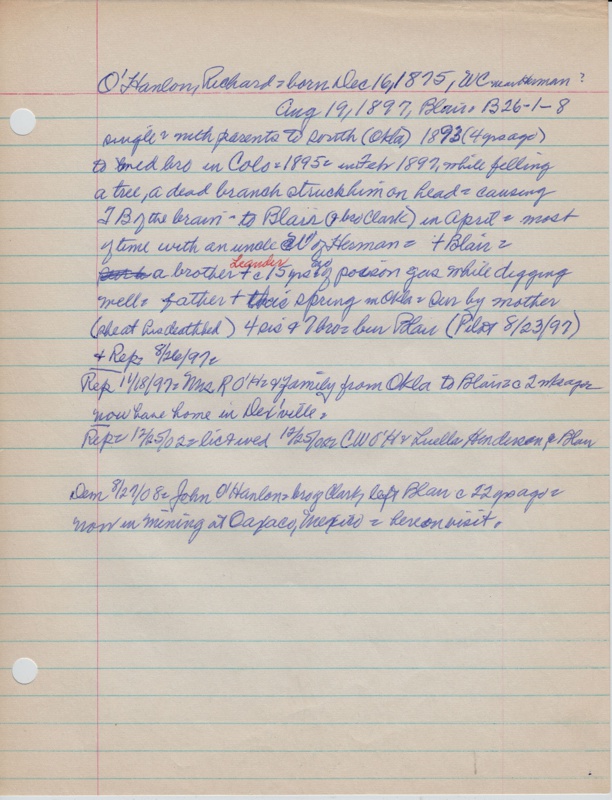 O'Hanlon, Richard = born Dec 16, 1875, WC near Herman?
Aug 19, 1897, Blair = B26-1-8
single = with parents to south (Okla) 1893 (4 yrs ago)
to bro in Colo = 1895 = in Feb 1897, while felling
a tree, a dead branch struck him on head = causing
TB of the brain - to Blair (bro Clark) in April = most
of time with an uncle W of Herman = + Blair =
a brother Leander + c 15 yrs ago of poison gas while digging
well = father + this spring in Okla = sur by mother
(she at his deathbed) 4 sis & 7 bro = bur Blair (Pilot 8/23/97)
& Rep 8/26/97 =
Rep 11/18/97 = Mrs R O'H = & family from Okla to Blair = c 2 wks ago =
now have home in Dex'ville =
Rep = 12/25/02 = lic & wed 12/25/02 CW O'H & Luella Henderson of Blair
Dem 8/27/08 = John O'Hanlon = bro of Clark, left Blair c 22 yrs ago =
now in mining at Oaxaco, Mexico = here on visit.